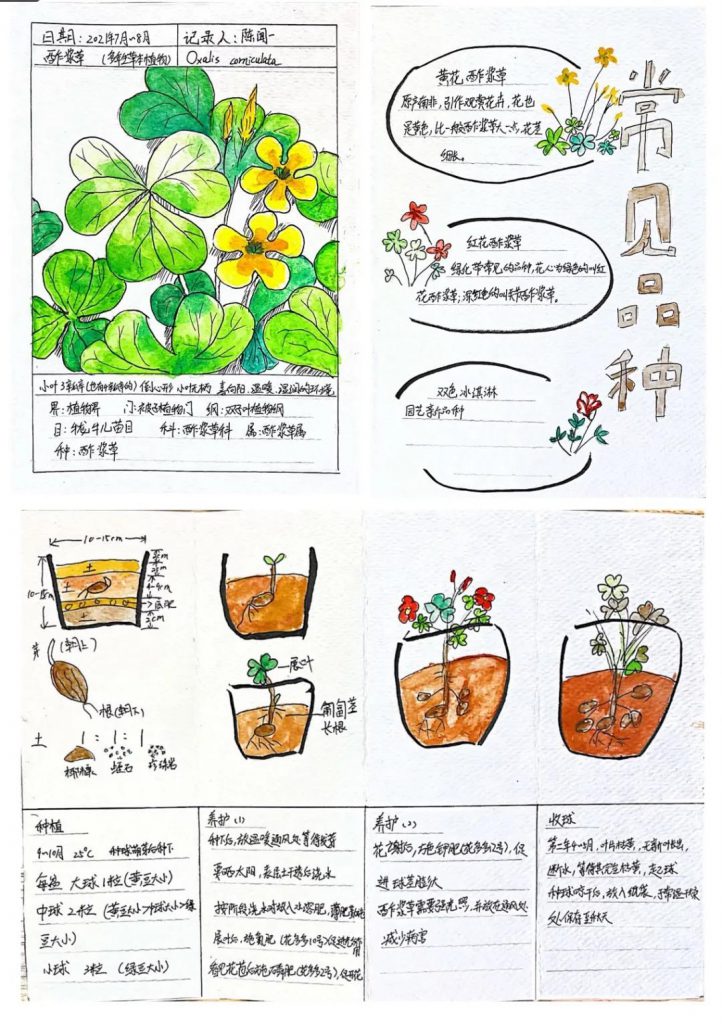 日期：2021年7月~8月
记录人：陈闻一
酢浆草 （多年生草本植物）
Oxalis corniculata
小叶3到4片（也有4到5片的）倒心形 小叶无柄 喜向阳、温暖、湿润的环境
界：植物界 门：被子植物门 纲：双子叶植物纲
目：牻牛儿苗目 科：酢浆草科 属：酢浆草属
种：酢浆草
常见品种
黄花酢浆草
原产南非，引作观赏花卉，花色
是黄色，比一般酢浆草大一点，花茎
细长。
红花酢浆草
绿化带常见的品种，花心为绿色的叫红
花酢浆草；深红色的叫关节酢浆草。
双色冰淇淋
园艺新品种
10-15cm
土
2cm
10-15cm
土
底肥
土
2cm
芽（朝上）
根（朝下）
土 1：1：1
椰糠 蛭石 珍珠岩
展叶
匍匐茎
长根
种植
4~10月 25℃ 种球萌芽后种下
每盆 大球1粒（黄豆大小）
中球2粒（黄豆大小>种球大小>绿
豆大小）
小球 3粒 （绿豆大小）
养护（1）
种下后，放温暖通风处等待发芽
要晒太阳，表层土干透后浇水
按阶段浇水时放入水溶肥，薄肥勤施
展叶后，施氮肥（花多多10号）促进光合作用
看见花苞后施磷肥（花多多2号），促开花
养护（2）
花谢后，施钾肥（花多多2号），促
进球茎膨大
酢浆草需要强光照，并放在通风处
减少病害
收球
第二年4~5月，叶片枯黄，无新叶长出，
断水，等待其完全枯黄，起球
种球晾干后，放入纸袋，于常温干燥
处保存至秋天